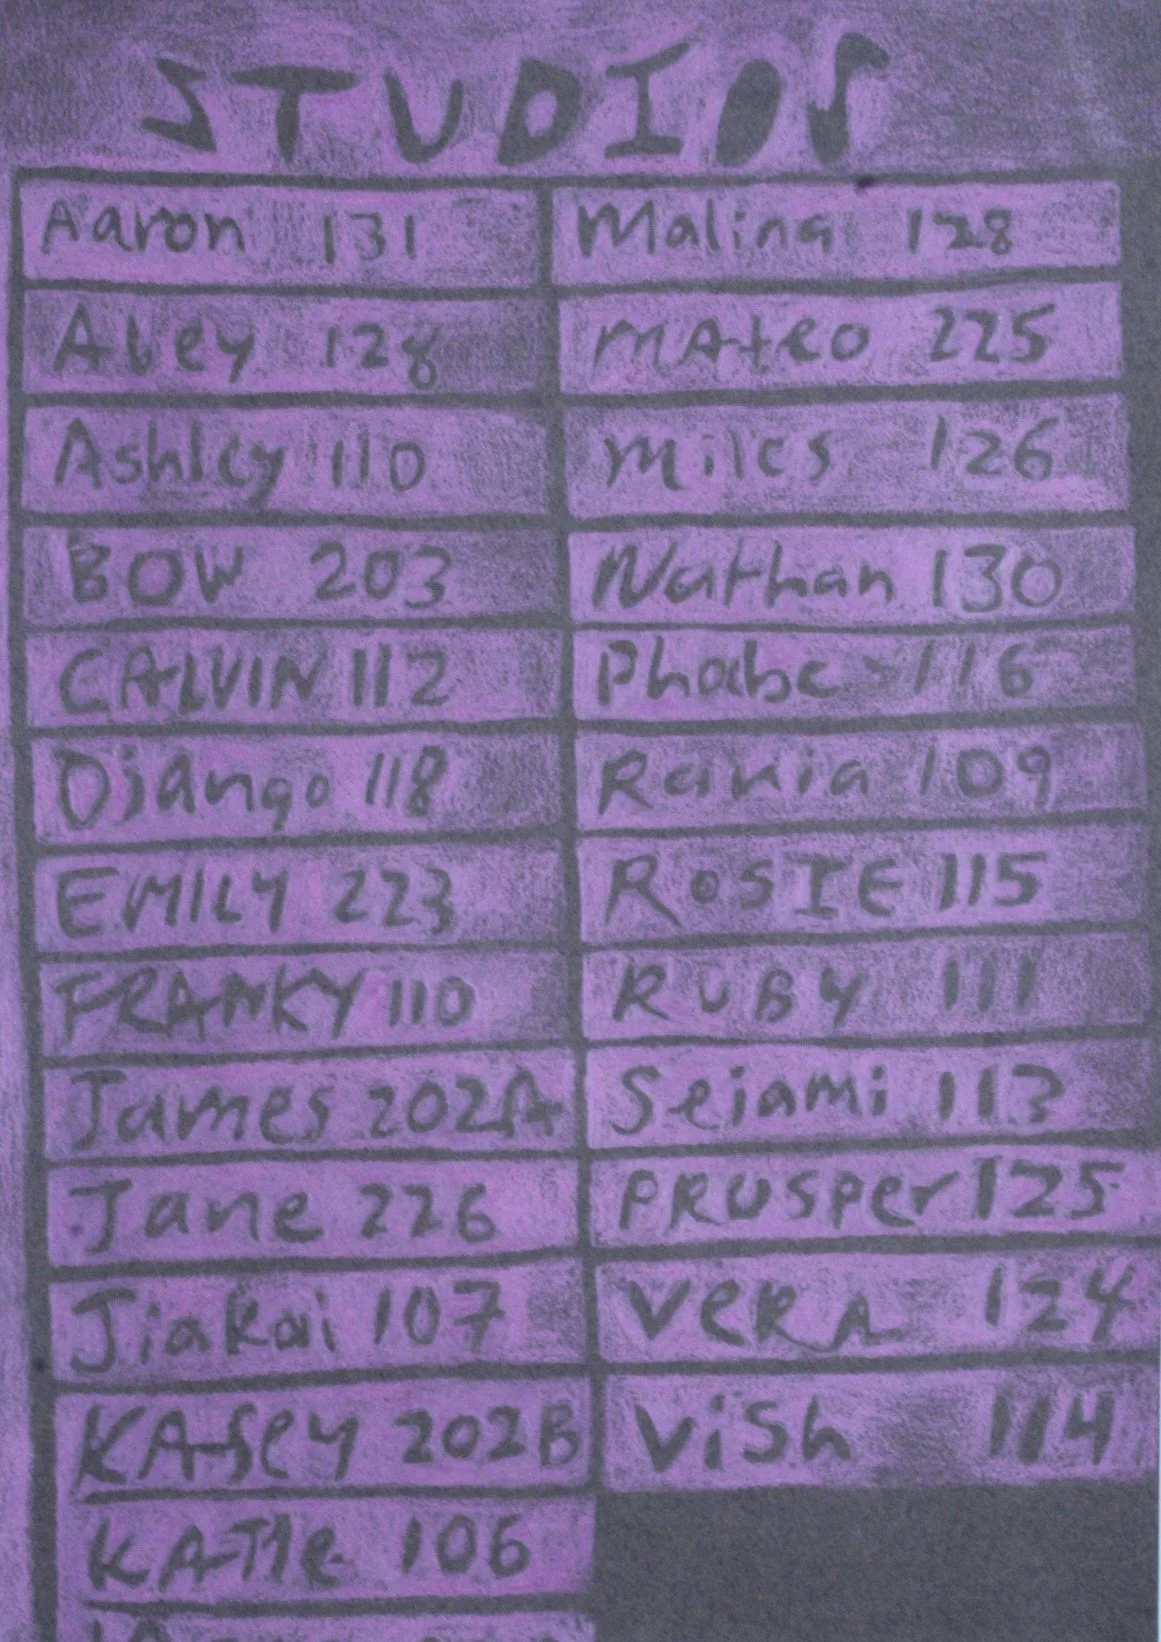 STUDIOS
Aaron 131
Abey 128
Ashley 110
BOW 203
CALVIN 112
Django 118
EMILY 223
FRANKY 110
James 202A
Jane 226
Jiakai 107
KAsey 202B
KATIe 106
Malina 128
MAteo 225
Miles 126
Nathan 130
Phoebe 116
Rania 109
ROSIE 115
RUBY 111
Sejami 113
PROSPer 125
VeRA 124
ViSh 114